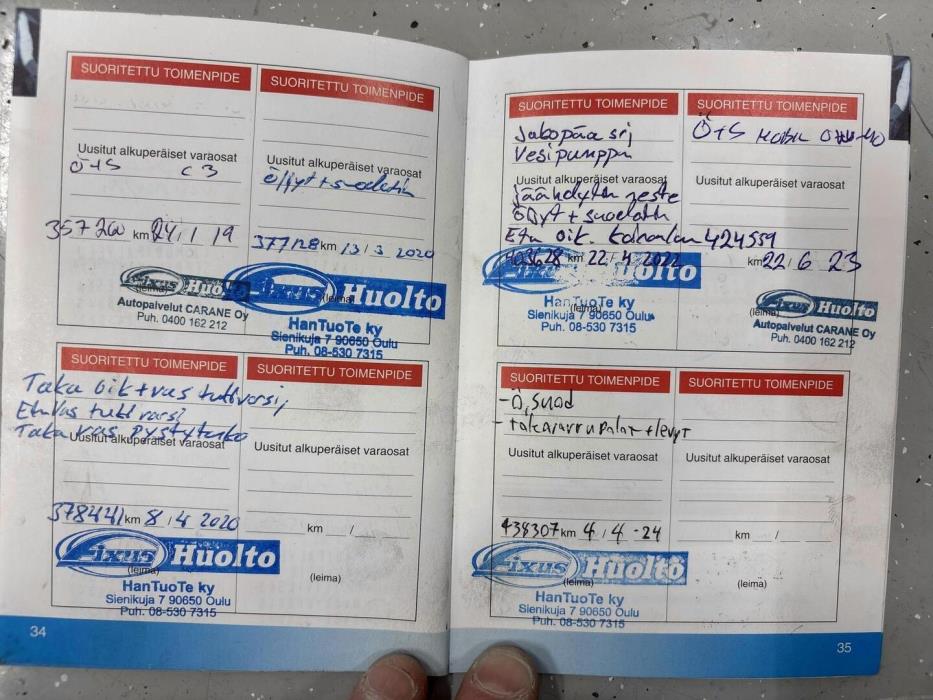 SUORITETTU TOIMENPIDE
Uusitut alkuperäiset varaosat
Ö+S C3
357260 km 24/1 19
Fixus Huolto
(leima)
Autopalvelut CARANE Oy
Puh. 0400 162 212
SUORITETTU TOIMENPIDE
Uusitut alkuperäiset varaosat
Öljyt + suodatin
377128 km 13/3 2020
Fixus Huolto
(leima)
HanTuoTe ky
Sienikuja 7 90650 Oulu
Puh. 08-530 7315
SUORITETTU TOIMENPIDE
Taka oik + vas tukivarsi,
Etuvas tukivarsi
Taka vas pystytuki
Uusitut alkuperäiset varaosat
378441 km 8/4 2020
Fixus Huolto
(leima)
HanTuoTe ky
Sienikuja 7 90650 Oulu
Puh. 08-530 7315
SUORITETTU TOIMENPIDE
Uusitut alkuperäiset varaosat
km /
(leima)
34
SUORITETTU TOIMENPIDE
Jakopää srj
Vesipumppu
Uusitut alkuperäiset varaosat
jäähdytin neste
Öljyt + suodatin
Etu oik.
403628 km 22/4 2022
Fixus Huolto
(leima)
HanTuoTe ky
Sienikuja 7 90650 Oulu
Puh. 08-530 7315
SUORITETTU TOIMENPIDE
Ö+S Mobil
Uusitut alkuperäiset varaosat
424559
km 22/6 23
Fixus Huolto
(leima)
Autopalvelut CARANE Oy
Puh. 0400 162 212
SUORITETTU TOIMENPIDE
-Ö, suod
- takajarrupalat + levyt
Uusitut alkuperäiset varaosat
438307 km 4/4 -24
Fixus Huolto
(leima)
HanTuoTe ky
Sienikuja 7 90650 Oulu
Puh. 08-530 7315
SUORITETTU TOIMENPIDE
Uusitut alkuperäiset varaosat
km /
(leima)
35